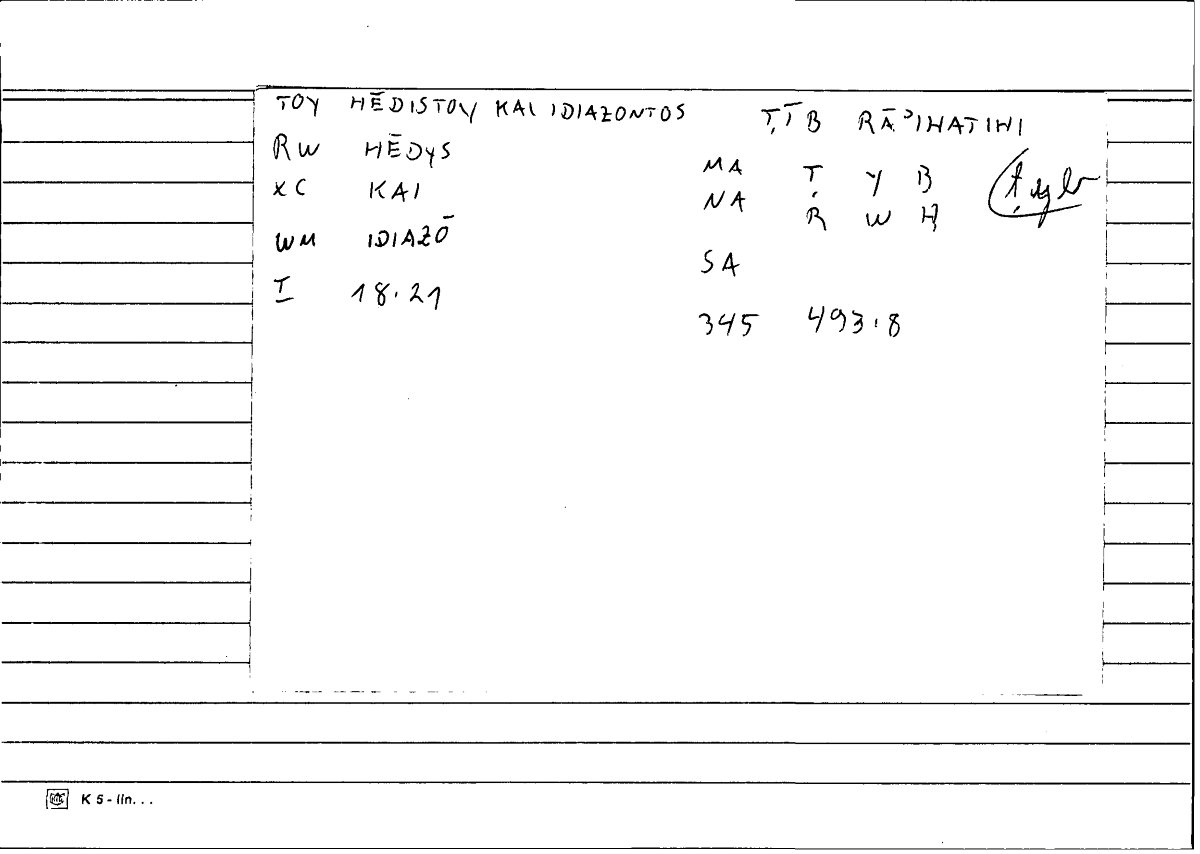 TOY HĒDISTOY KAI IDIAZONTOS
RW HĒDYS
XC KAI
WM IDIAZŌ
I 18.21
ṬĪB RĀʾIḤATIHI
MA Ṭ Y B
NA R W Ḥ
SA
345 493.8
K 5 - lin. . .